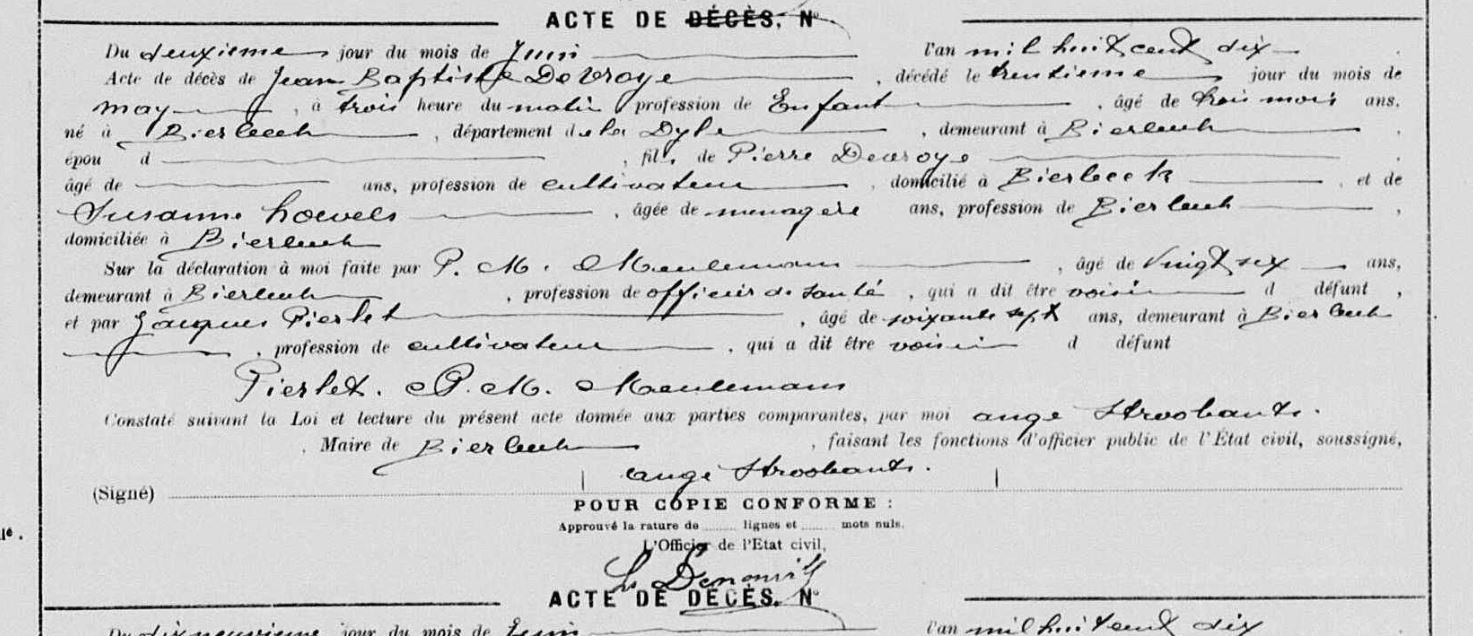 ACTE DE DÉCÈS. N°
Du deuxieme jour du mois de Juin l'an mil huit cent dix
Acte de décès de Jean Baptiste Devroye, décédé le trentieme jour du mois de
may, à trois heure du matin profession de Enfant, âgé de trois mois ans,
né à Bierbeek, département de la Dyle, demeurant à Bierbeek.
épou d, fils de Pierre Devroye.
âgé de ans, profession de cultivateur, domicilié à Bierbeek, et de
Susanne Loevels, âgée de menagere ans, profession de Bierbeek,
domiciliée à Bierbeek
Sur la déclaration à moi faite par P. M. Maeulemans, âgé de vingt six ans,
demeurant à Bierbeek, profession de officier de santé, qui a dit être voisin d défunt,
et par Jacques Pierlet, âgé de soixante sept ans, demeurant à Bierbeek
, profession de cultivateur, qui a dit être voisin d défunt
Pierlet. P. M. Maeulemans
Constaté suivant la Loi et lecture du présent acte donnée aux parties comparantes, par moi ange Stroobants.
, Maire de Bierbeek, faisant les fonctions d'officier public de l'État civil, soussigné,
ange Stroobants.
(Signé)
POUR COPIE CONFORME :
Approuvé la rature de ...... lignes et ...... mots nuls.
L'Officier de l'Etat civil,
ACTE DE DÉCÈS. N°
Du dix neuvieme jour du mois de Juin l'an mil huit cent dix